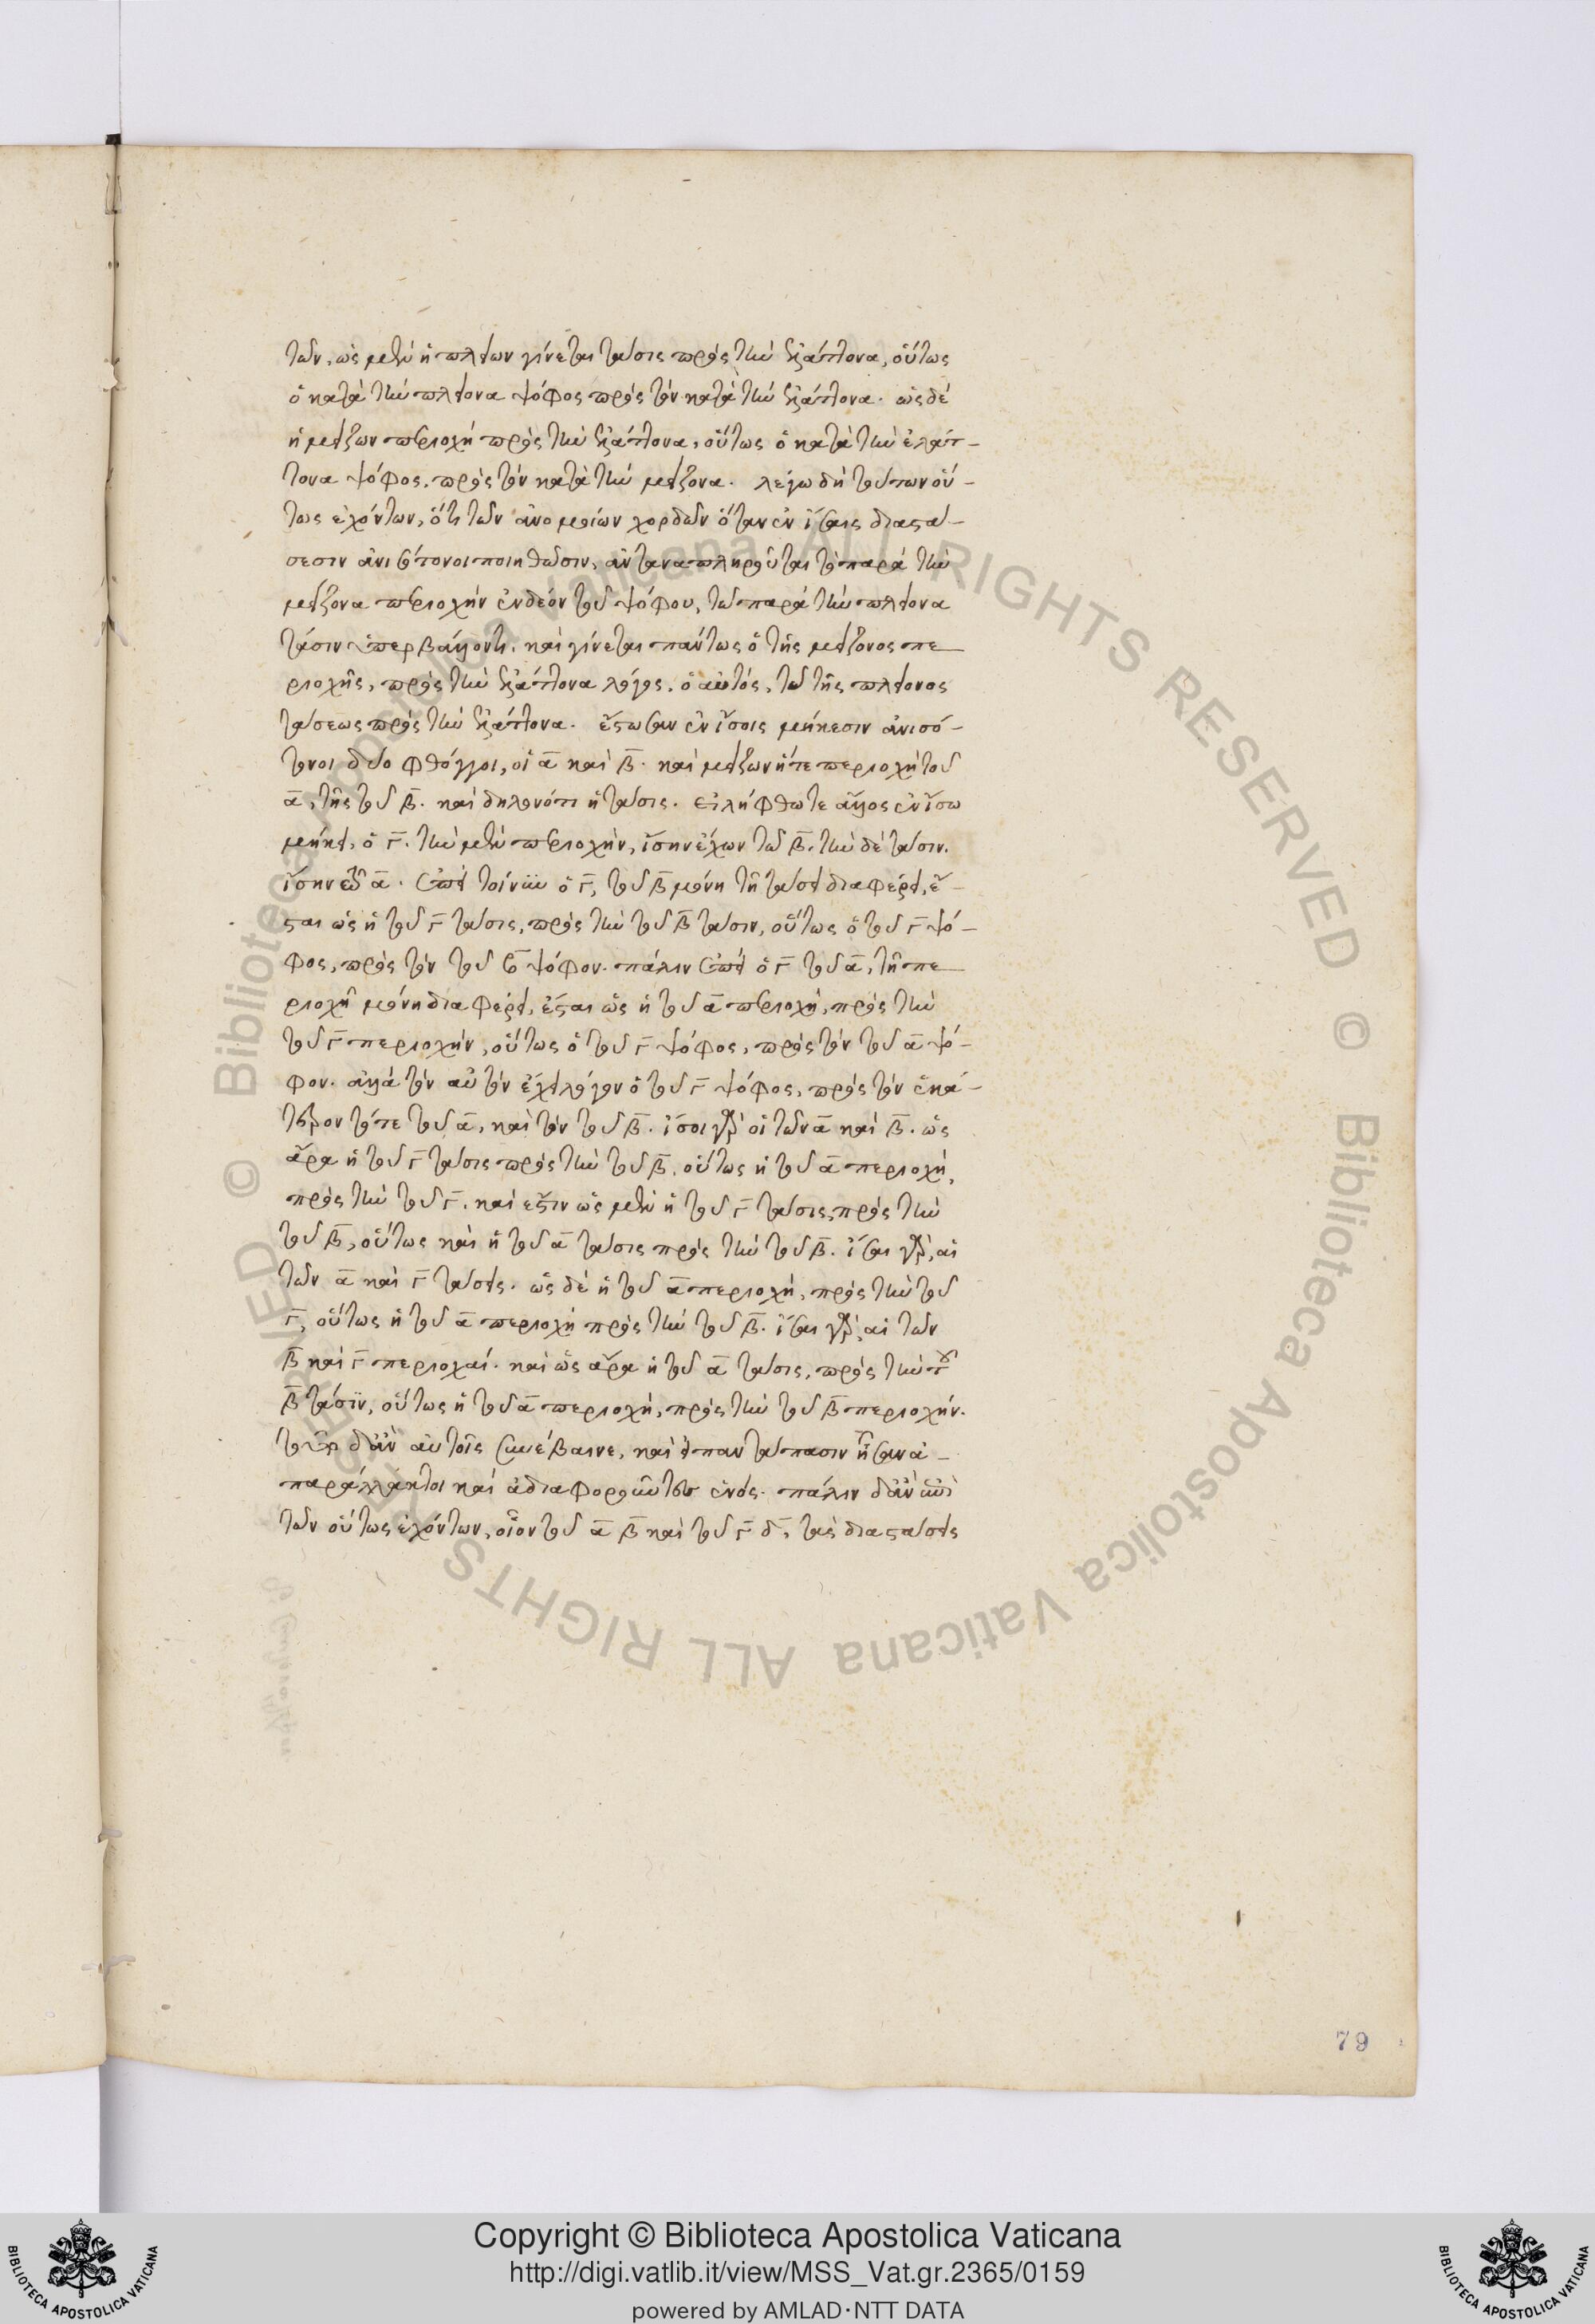 των, ὡς μὲν ἡ πλείων γίνεται τάσις πρὸς τὴν ἐλάττονα, οὕτως
ὁ κατὰ τὴν πλείονα ψόφος πρὸς τὸν κατὰ τὴν ἐλάττονα. ὡς δὲ
ἡ μείζων περιοχὴ πρὸς τὴν ἐλάττονα, οὕτως ὁ κατὰ τὴν ἐλάτ-
τονα ψόφος, πρὸς τὸν κατὰ τὴν μείζονα. λέγω δὴ τούτων οὕ-
τως ἐχόντων, ὅτι τῶν ἀνομοίων χορδῶν ὅταν ἐν ἴσαις διαστά-
σεσιν ἀνισότονοι ποιηθῶσιν, ἀνταναπληροῦται τὸ παρὰ τὴν
μείζονα περιοχὴν ἐνδέον τοῦ ψόφου, τῷ παρὰ τὴν πλείονα
τάσιν ὑπερβάλλοντι. καὶ γίνεται πάντως ὁ τῆς μείζονος πε
ριοχῆς, πρὸς τὴν ἐλάττονα λόγος, ὁ αὐτός, τῷ τῆς πλείονος
τάσεως πρὸς τὴν ἐλάττονα. ἔστωσαν ἐν ἴσοις μήκεσιν ἀνισό-
τονοι δύο φθόγγοι, οἱ α̅ καὶ β̅. καὶ μείζων ἥ τε περιοχὴ τοῦ
α̅, τῆς τοῦ β̅. καὶ δηλονότι ἡ τάσις. εἰλήφθω τε ἄλλος ἐν ἴσῳ
μήκει, ὁ γ̅. τὴν μὲν περιοχὴν, ἴσην ἔχων τῷ β̅. τὴν δὲ τάσιν.
ἴσην τῷ α̅. ἐπεὶ τοίνυν ὁ γ̅, τοῦ β̅ μόνῃ τῇ τάσει διαφέρει, ἔ-
σται ὡς ἡ τοῦ γ̅ τάσις, πρὸς τὴν τοῦ β̅ τάσιν, οὕτως ὁ τοῦ γ̅ ψό-
φος, πρὸς τὸν τοῦ β̅ ψόφον. πάλιν ἐπεὶ ὁ γ̅ τοῦ α̅, τῇ πε
ριοχῇ μόνῃ διαφέρει, ἔσται ὡς ἡ τοῦ α̅ περιοχὴ, πρὸς τὴν
τοῦ γ̅ περιοχὴν, οὕτως ὁ τοῦ γ̅ ψόφος, πρὸς τὸν τοῦ α̅ ψό-
φον. ἀλλὰ τὸν αὐτὸν ἔχει λόγον ὁ τοῦ γ̅ ψόφος, πρὸς τὸν ἑκά-
τερον τόν τε τοῦ α̅, καὶ τὸν τοῦ β̅. ἴσοι γὰρ οἱ τῶν α̅ καὶ β̅. ὡς
ἄρα ἡ τοῦ γ̅ τάσις πρὸς τὴν τοῦ β̅, οὕτως ἡ τοῦ α̅ περιοχὴ,
πρὸς τὴν τοῦ γ̅. καὶ ἔστιν ὡς μὲν ἡ τοῦ γ̅ τάσις, πρὸς τὴν
τοῦ β̅, οὕτως καὶ ἡ τοῦ α̅ τάσις πρὸς τὴν τοῦ β̅. ἴσαι γὰρ, αἱ
τῶν α̅ καὶ γ̅ τάσεις. ὡς δὲ ἡ τοῦ α̅ περιοχὴ, πρὸς τὴν τοῦ
γ̅, οὕτως ἡ τοῦ α̅ περιοχὴ πρὸς τὴν τοῦ β̅. ἴσαι γὰρ, αἱ τῶν
β̅ καὶ γ̅ περιοχαί. καὶ ὡς ἄρα ἡ τοῦ α̅ τάσις, πρὸς τὴν τοῦ
β̅ τάσϊν, οὕτως ἡ τοῦ α̅ περιοχὴ, πρὸς τὴν τοῦ β̅ περιοχήν.
αὐτοῖς συνέβαινε, καὶ εἰ παντάπασιν ἦσαν ἀ-
παράλλακτοι καὶ ἑνός. πάλιν
τῶν οὕτως ἐχόντων, οἷον τοῦ α̅ β̅ καὶ τοῦ γ̅ δ̅, τὰς διαστάσεις
79
Copyright © Biblioteca Apostolica Vaticana
http://digi.vatlib.it/view/MSS_Vat.gr.2365/0159
powered by AMLAD·NTT DATA